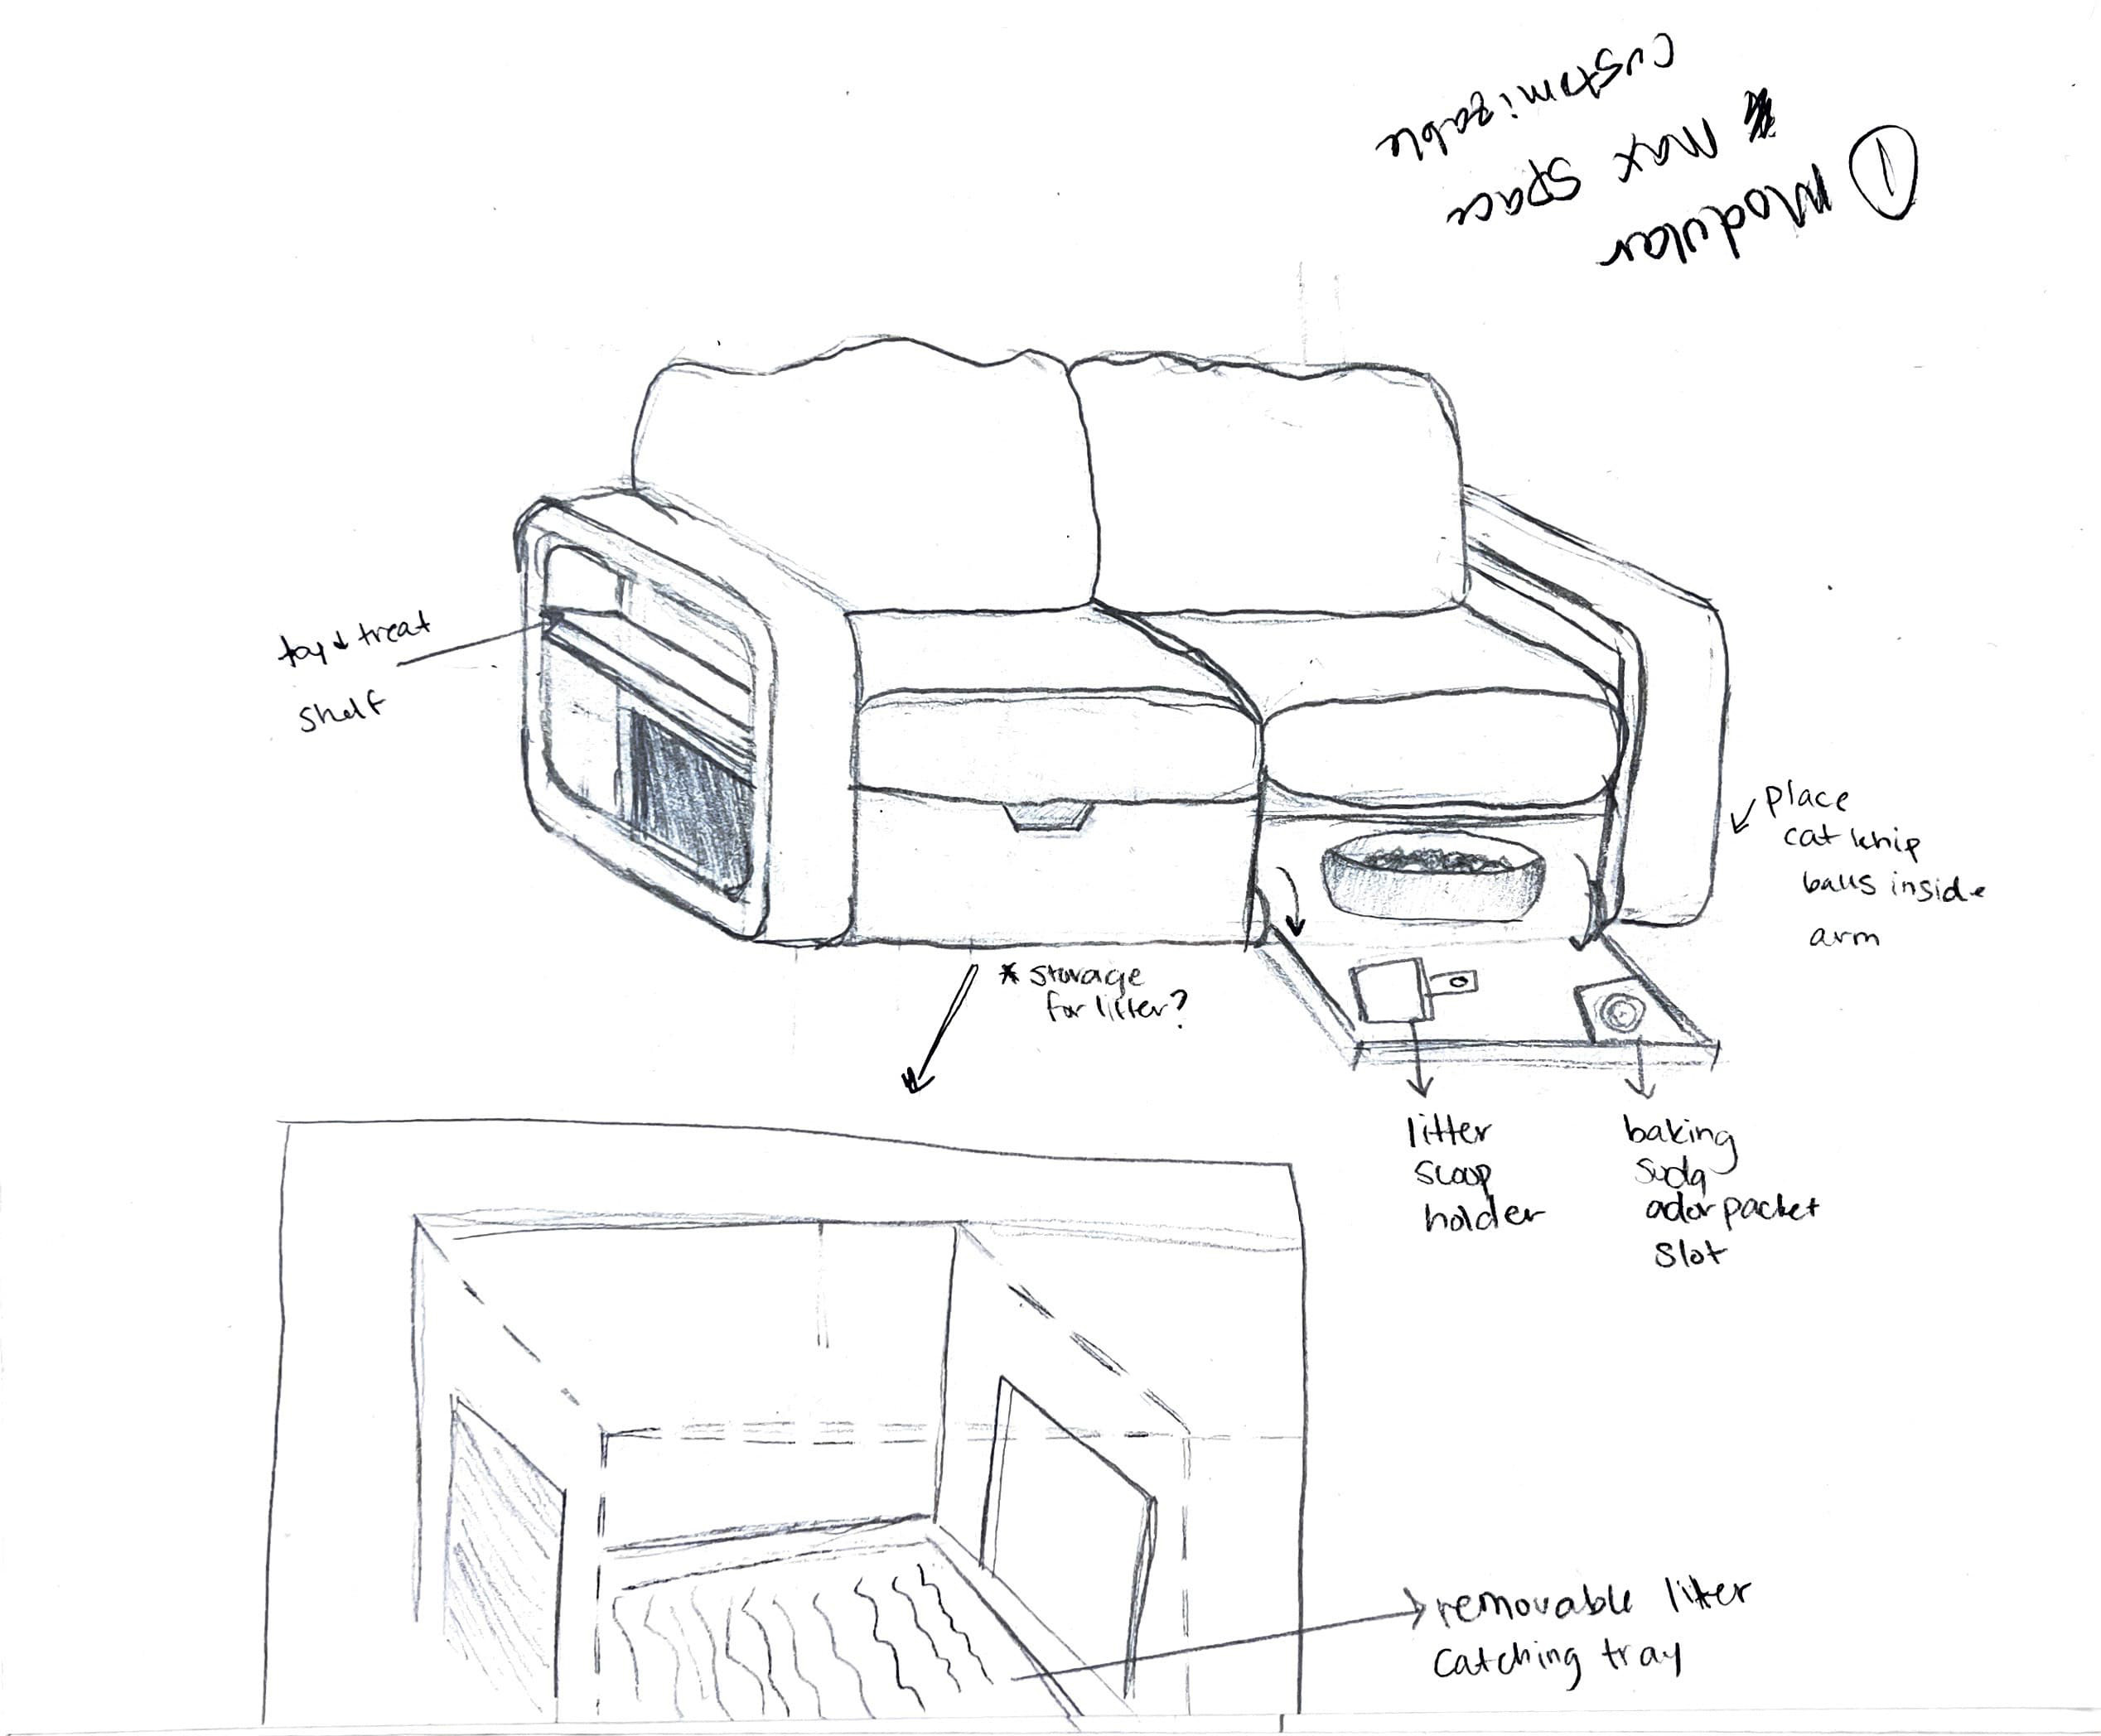 ① Modular
max space
customizable
toy & treat
shelf
place
cat knip
balls inside
arm
* storage
for litter?
litter
scoop
holder
baking
soda
odor packet
slot
removable litter
catching tray